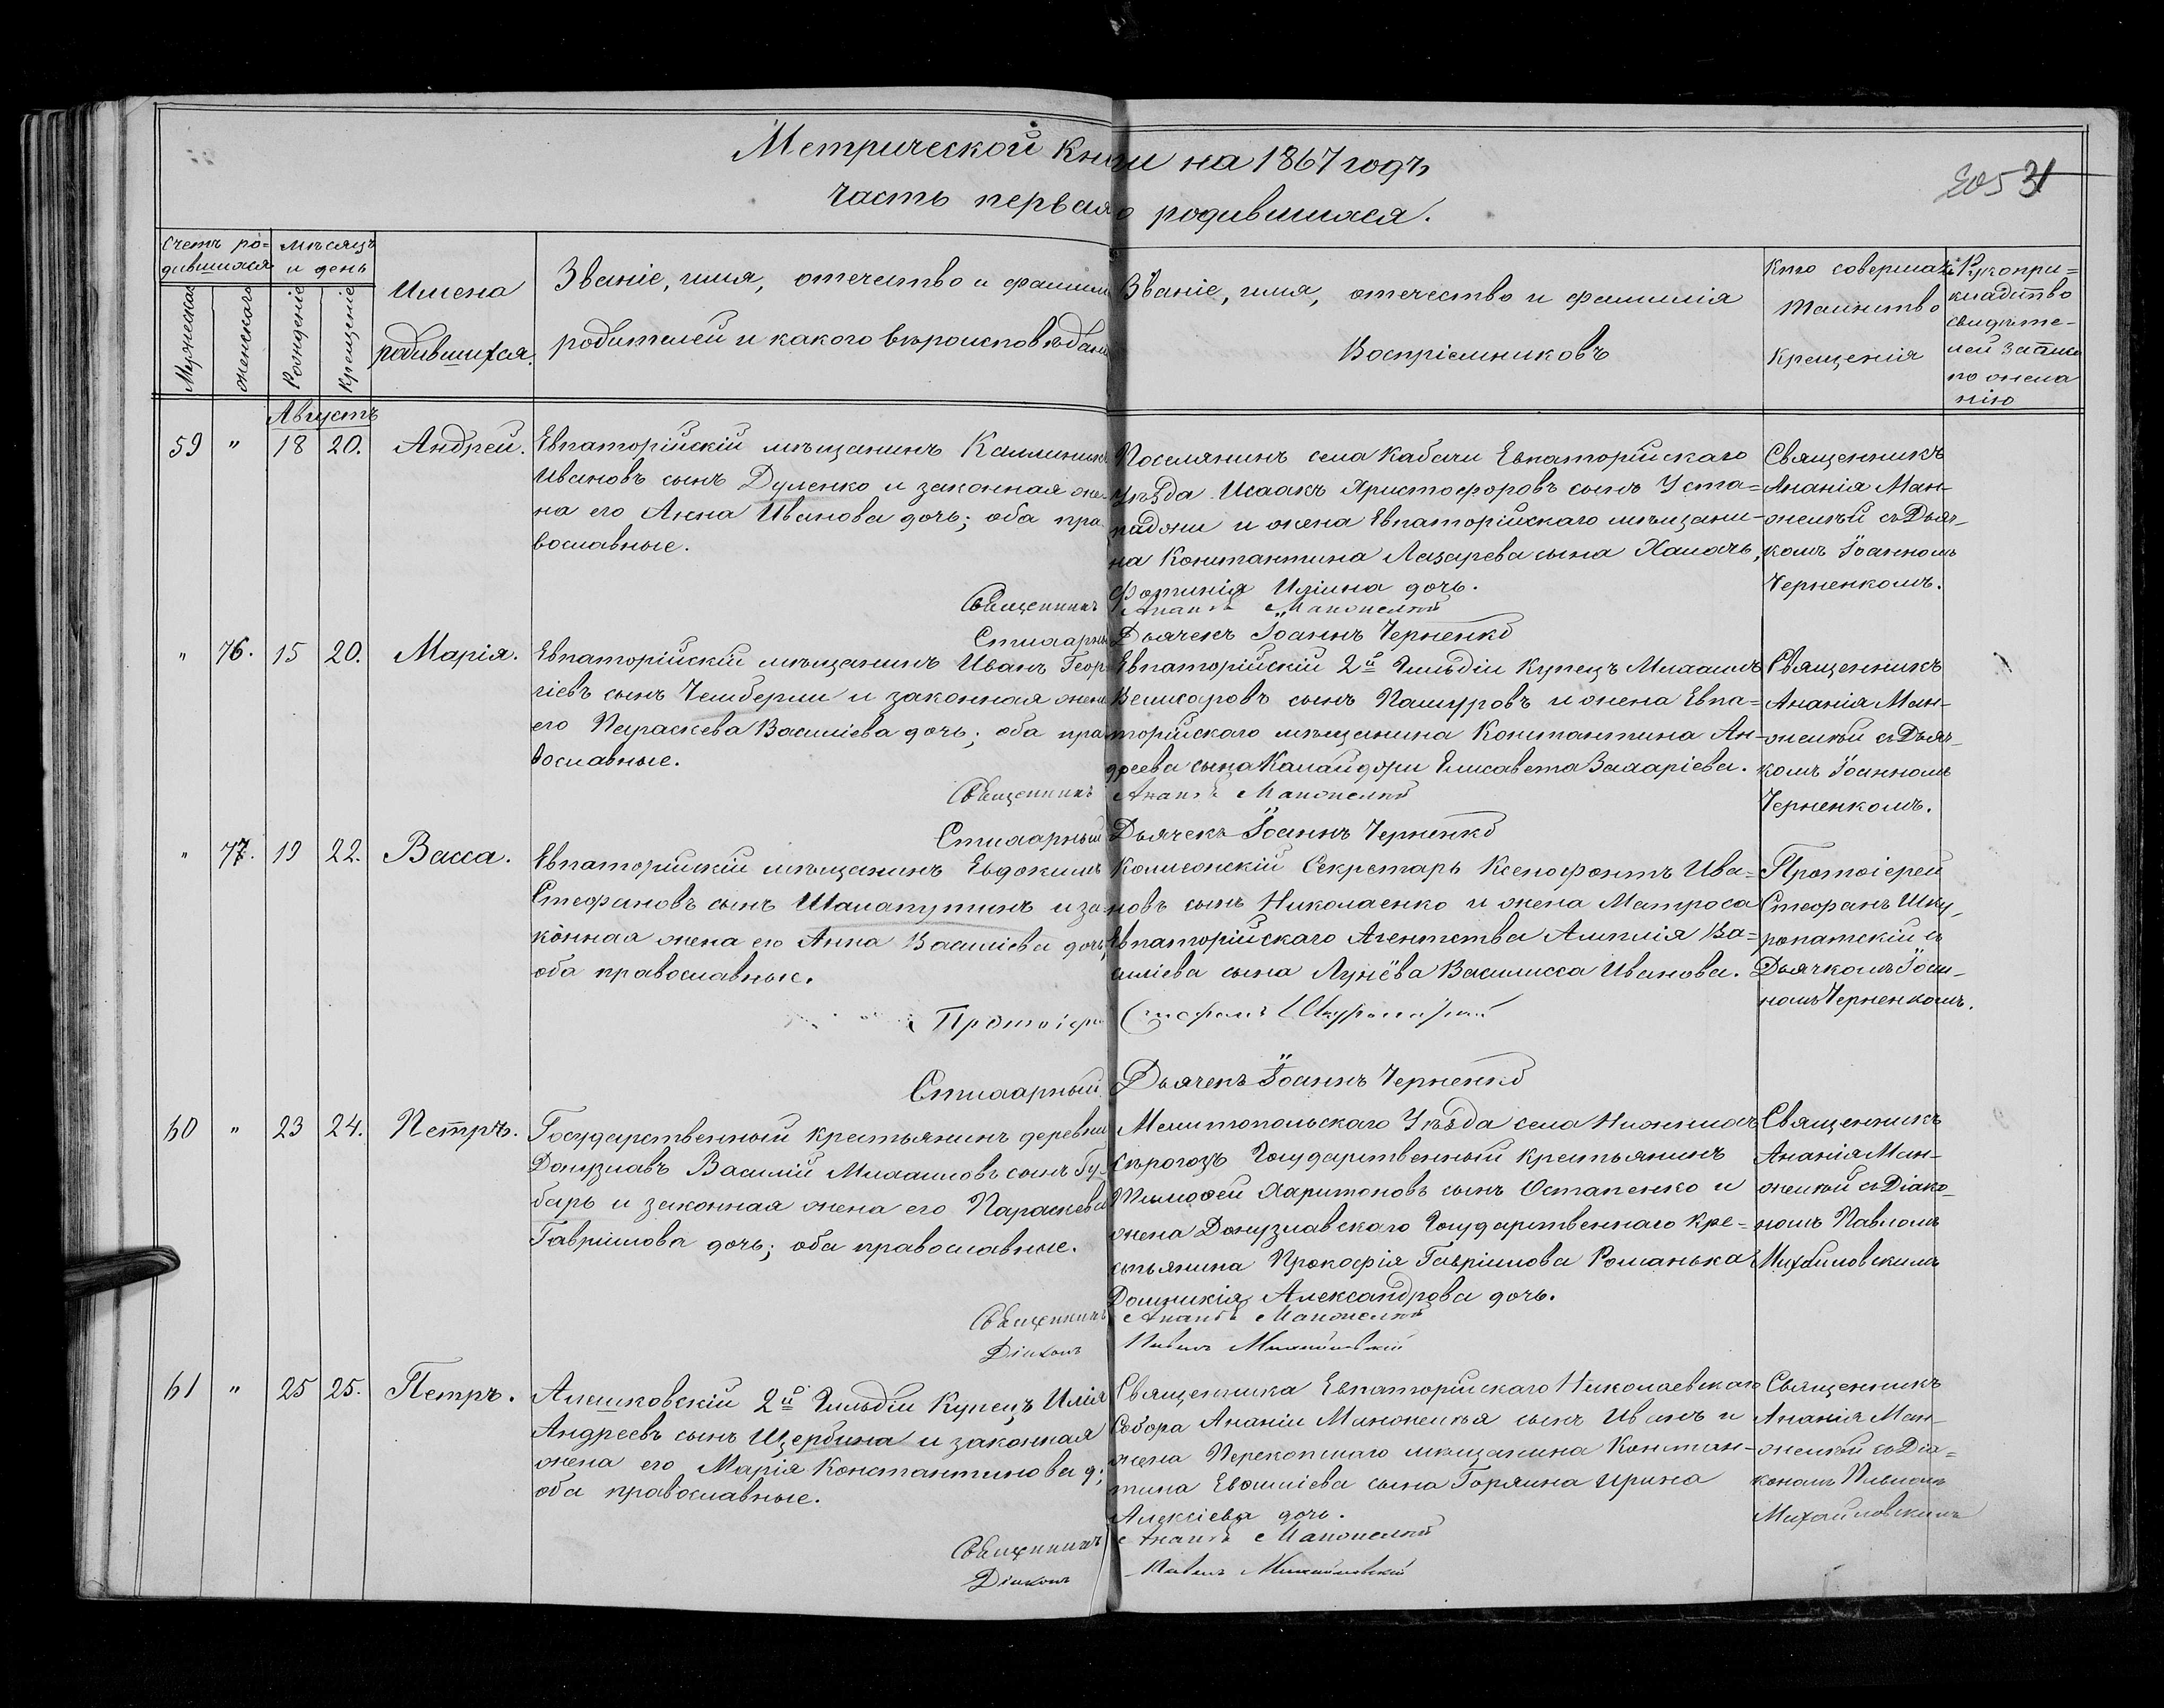 Метрической Книги на 1867 годъ
305 31
часть первая о родившихся.
Счетъ ро=
дившихся
Мужеска
женскаго
мѣсяцъ
и день
Рожденіе
Крещеніе
Имена
родившихся.
Званіе, имя, отечество и фамилія
родителей и какого вѣроисповѣданія
Званіе, имя, отечество и фамилія
Воспріемниковъ
Кто совершалъ
таинство
крещенія
Рукопри=
кладство
свидѣте-
лей записи
по жела
нію
Августъ
59 " 18 20. Андрей.
Евпаторійскій мѣщанинъ Каллиникъ
Ивановъ сынъ Дуленко и законная же-
на его Анна Иванова дочь; оба пра-
вославные.
Поселянинъ села Кабачи Евпаторійскаго
Уѣзда Исаакъ Христофоровъ сынъ Уста=
паджи и жена Евпаторійскаго мѣщани-
на Константина Лазарева сына Халачъ,
Фотинія Иліина дочь.
Священникъ
Ананія Ман-
желѣй съ Дьяч-
комъ Іоанномъ
Черненкомъ.
Священникъ Ананія Манжелѣй
Стихарный Дьячекъ Іоаннъ Черненко
" 76. 15 20. Марія.
Евпаторійскій мѣщанинъ Иванъ Геор-
гіевъ сынъ Чембержи и законная жена
его Параскева Василіева дочь; оба пра-
вославные.
Евпаторійскій 2й Гильдіи Купецъ Михаилъ
сынъ Пашуровъ и жена Евпа=
торійскаго мѣщанина Константина Ан-
дреева сына Калайджи Елисавета Захаріева.
Священникъ
Ананія Ман-
желѣй съ Дьяч-
комъ Іоанномъ
Черненкомъ.
Священникъ Ананія Манжелѣй
Стихарный Дьячекъ Іоаннъ Черненко
" 77. 19 22. Васса.
Евпаторійскій мѣщанинъ Евдокимъ
Стефановъ сынъ Шалапутинъ и за-
конная жена его Анна Василіева дочь,
оба православные.
Коллежскій Секретарь Ксенофонтъ Ива=
новъ сынъ Николаенко и жена Матроса
Евпаторійскаго Агентства Амплія Ва=
силіева сына Лунёва Василисса Иванова.
Протоіерей
Стефанъ Шку-
ропатскій съ
Дьячкомъ Іоан-
номъ Черненкомъ.
Протоіерей Стефанъ Шкуропатскій
Стихарный Дьячекъ Іоаннъ Черненко
60 " 23 24. Петръ.
Государственный крестьянинъ деревни
Донузлавъ Василій Михаиловъ сынъ Гу-
барь и законная жена его Параскева
Гавріилова дочь; оба православные.
Мелитопольскаго Уѣзда села Нижнихъ
Сѣрогозъ Государственный крестьянинъ
Тимоѳей Харитоновъ сынъ Остапенко и
жена Донузлавскаго Государственнаго кре-
стьянина Прокофія Гавріилова Романька
Домникія Александрова дочь.
Священникъ
Ананія Ман-
желѣй съ Діако-
номъ Павломъ
Михайловскимъ
Священникъ Ананія Манжелѣй
Діаконъ Павелъ Михайловскій
61 " 25 25. Петръ.
Алешковскій 2й Гильдіи Купецъ Илія
Андреевъ сынъ Щербина и законная
жена его Марія Константинова д;
оба православные.
Священника Евпаторійскаго Николаевскаго
Собора Ананіи Манжелѣя сынъ Иванъ и
жена Перекопскаго мѣщанина Констан-
тина сына Горяина Ирина
Алексіева дочь.
Священникъ
Ананія Ман-
желѣй съ Діа=
кономъ Павломъ
Михайловскимъ
Священникъ Ананія Манжелѣй
Діаконъ Павелъ Михайловскій